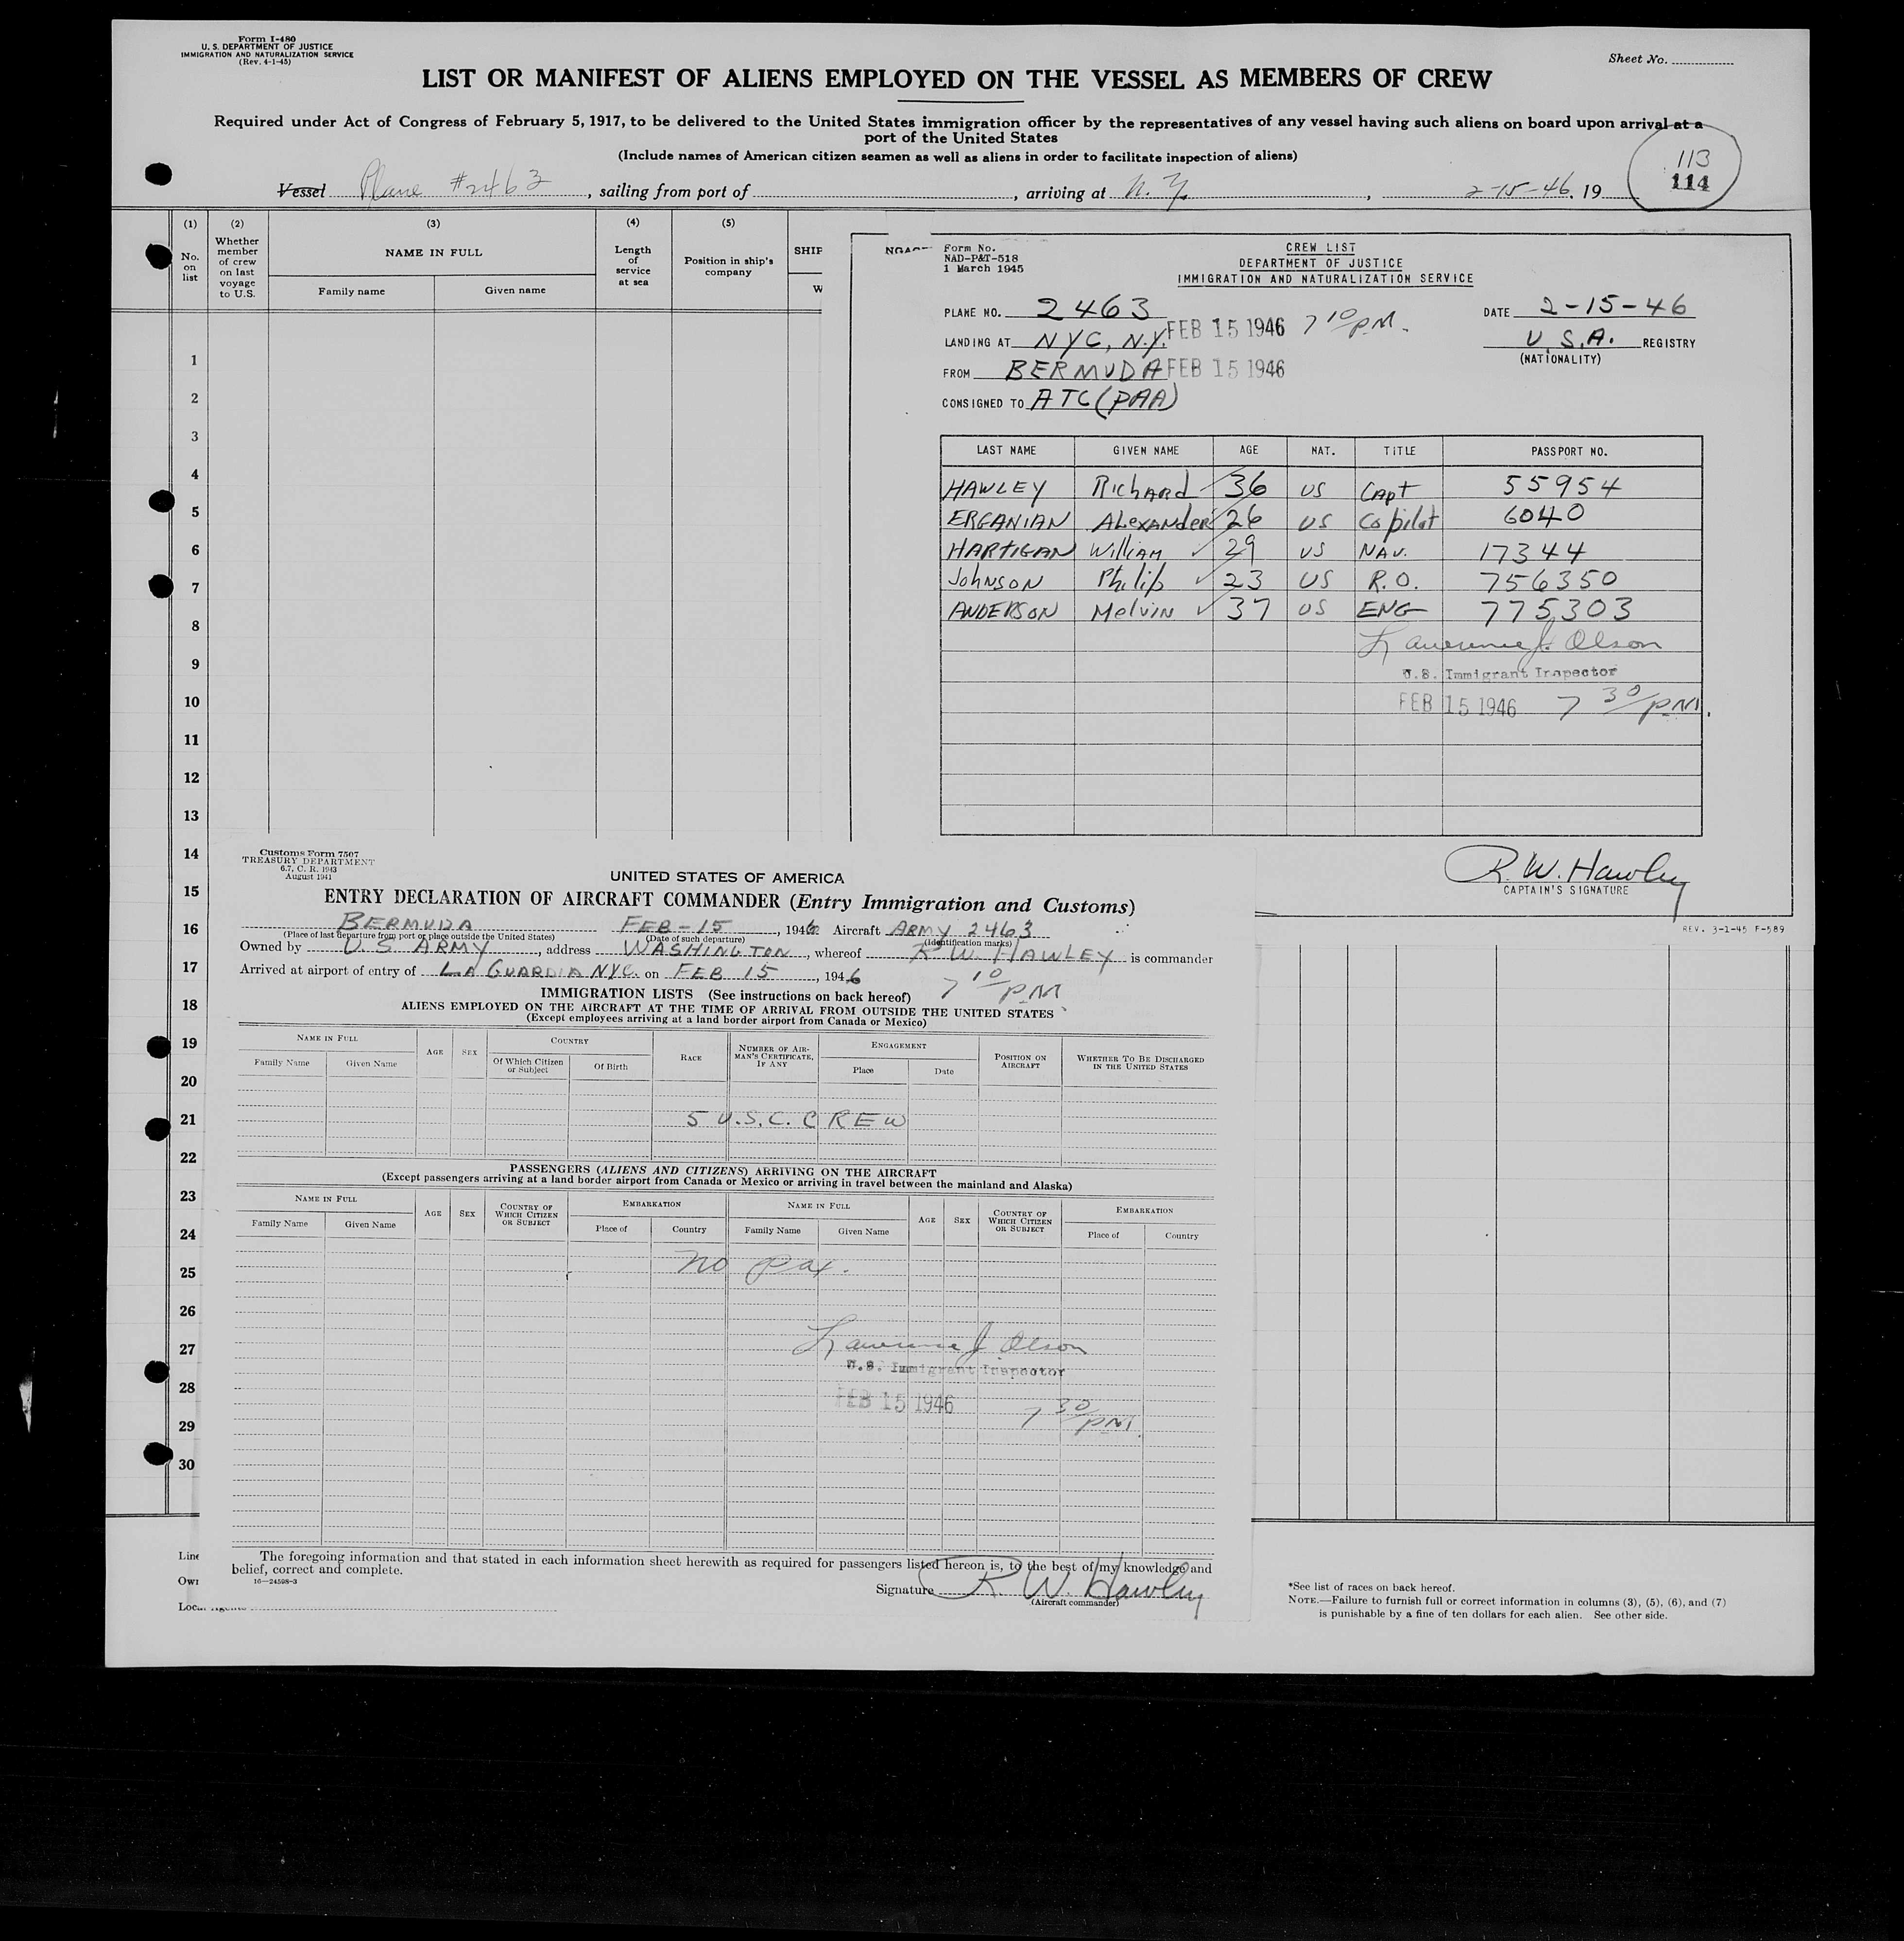 Form I-480
U. S. DEPARTMENT OF JUSTICE
IMMIGRATION AND NATURALIZATION SERVICE
(Rev. 4-1-45)
Sheet No.
LIST OR MANIFEST OF ALIENS EMPLOYED ON THE VESSEL AS MEMBERS OF CREW
Required under Act of Congress of February 5, 1917, to be delivered to the United States immigration officer by the representatives of any vessel having such aliens on board upon arrival at a
port of the United States
(Include names of American citizen seamen as well as aliens in order to facilitate inspection of aliens)
113
114
Vessel Plane #2463, sailing from port of , arriving at N. Y. , 2-15-46, 19
(1) (2) (3) (4) (5)
No. on list
Whether member of crew on last voyage to U.S.
NAME IN FULL
Family name Given name
Length of service at sea
Position in ship's company
SHIP
W
NGAG
1
2
3
4
5
6
7
8
9
10
11
12
13
14
15
16
17
18
19
20
21
22
23
24
25
26
27
28
29
30
Form No.
NAD-P&T-518
1 March 1945
CREW LIST
DEPARTMENT OF JUSTICE
IMMIGRATION AND NATURALIZATION SERVICE
PLANE NO. 2463 DATE 2-15-46
LANDING AT NYC, N.Y. FEB 15 1946 7 10/PM. U.S.A. REGISTRY
(NATIONALITY)
FROM BERMUDA FEB 15 1946
CONSIGNED TO ATC (PAA)
LAST NAME GIVEN NAME AGE NAT. TITLE PASSPORT NO.
HAWLEY Richard 36 US Capt 55954
ERGANIAN Alexander 26 US Copilot 6040
HARTIGAN William 29 US NAV. 17344
Johnson Philip 23 US R.O. 756350
ANDERSON Melvin 37 US ENG 775303
Lawrence J. Olson
U.S. Immigrant Inspector
FEB 15 1946 7 30/PM.
R. W. Hawley
CAPTAIN'S SIGNATURE
REV. 3-1-45 F-589
Customs Form 7507
TREASURY DEPARTMENT
6.7, C. R. 1943
August 1941
UNITED STATES OF AMERICA
ENTRY DECLARATION OF AIRCRAFT COMMANDER (Entry Immigration and Customs)
BERMUDA FEB-15, 1946 Aircraft ARMY 2463
(Place of last departure from port or place outside the United States) (Date of such departure) (Identification marks)
Owned by U S ARMY, address WASHINGTON, whereof R W HAWLEY is commander
Arrived at airport of entry of LA GUARDIA NYC. on FEB 15, 1946 7 10/PM
IMMIGRATION LISTS (See instructions on back hereof)
ALIENS EMPLOYED ON THE AIRCRAFT AT THE TIME OF ARRIVAL FROM OUTSIDE THE UNITED STATES
(Except employees arriving at a land border airport from Canada or Mexico)
NAME IN FULL AGE SEX COUNTRY RACE NUMBER OF AIRMAN'S CERTIFICATE, IF ANY ENGAGEMENT POSITION ON AIRCRAFT WHETHER TO BE DISCHARGED IN THE UNITED STATES
Family Name Given Name Of Which Citizen or Subject Of Birth Place Date
5 U.S.C. CREW
PASSENGERS (ALIENS AND CITIZENS) ARRIVING ON THE AIRCRAFT
(Except passengers arriving at a land border airport from Canada or Mexico or arriving in travel between the mainland and Alaska)
NAME IN FULL AGE SEX COUNTRY OF WHICH CITIZEN OR SUBJECT EMBARKATION NAME IN FULL AGE SEX COUNTRY OF WHICH CITIZEN OR SUBJECT EMBARKATION
Family Name Given Name Place of Country Family Name Given Name Place of Country
no pax.
Lawrence J Olson
U.S. Immigrant Inspector
FEB 15 1946 7 30/PM.
The foregoing information and that stated in each information sheet herewith as required for passengers listed hereon is, to the best of my knowledge and
belief, correct and complete.
16—24598-3
Signature R W. Hawley
(Aircraft commander)
Line
Own
*See list of races on back hereof.
NOTE.—Failure to furnish full or correct information in columns (3), (5), (6), and (7)
is punishable by a fine of ten dollars for each alien. See other side.